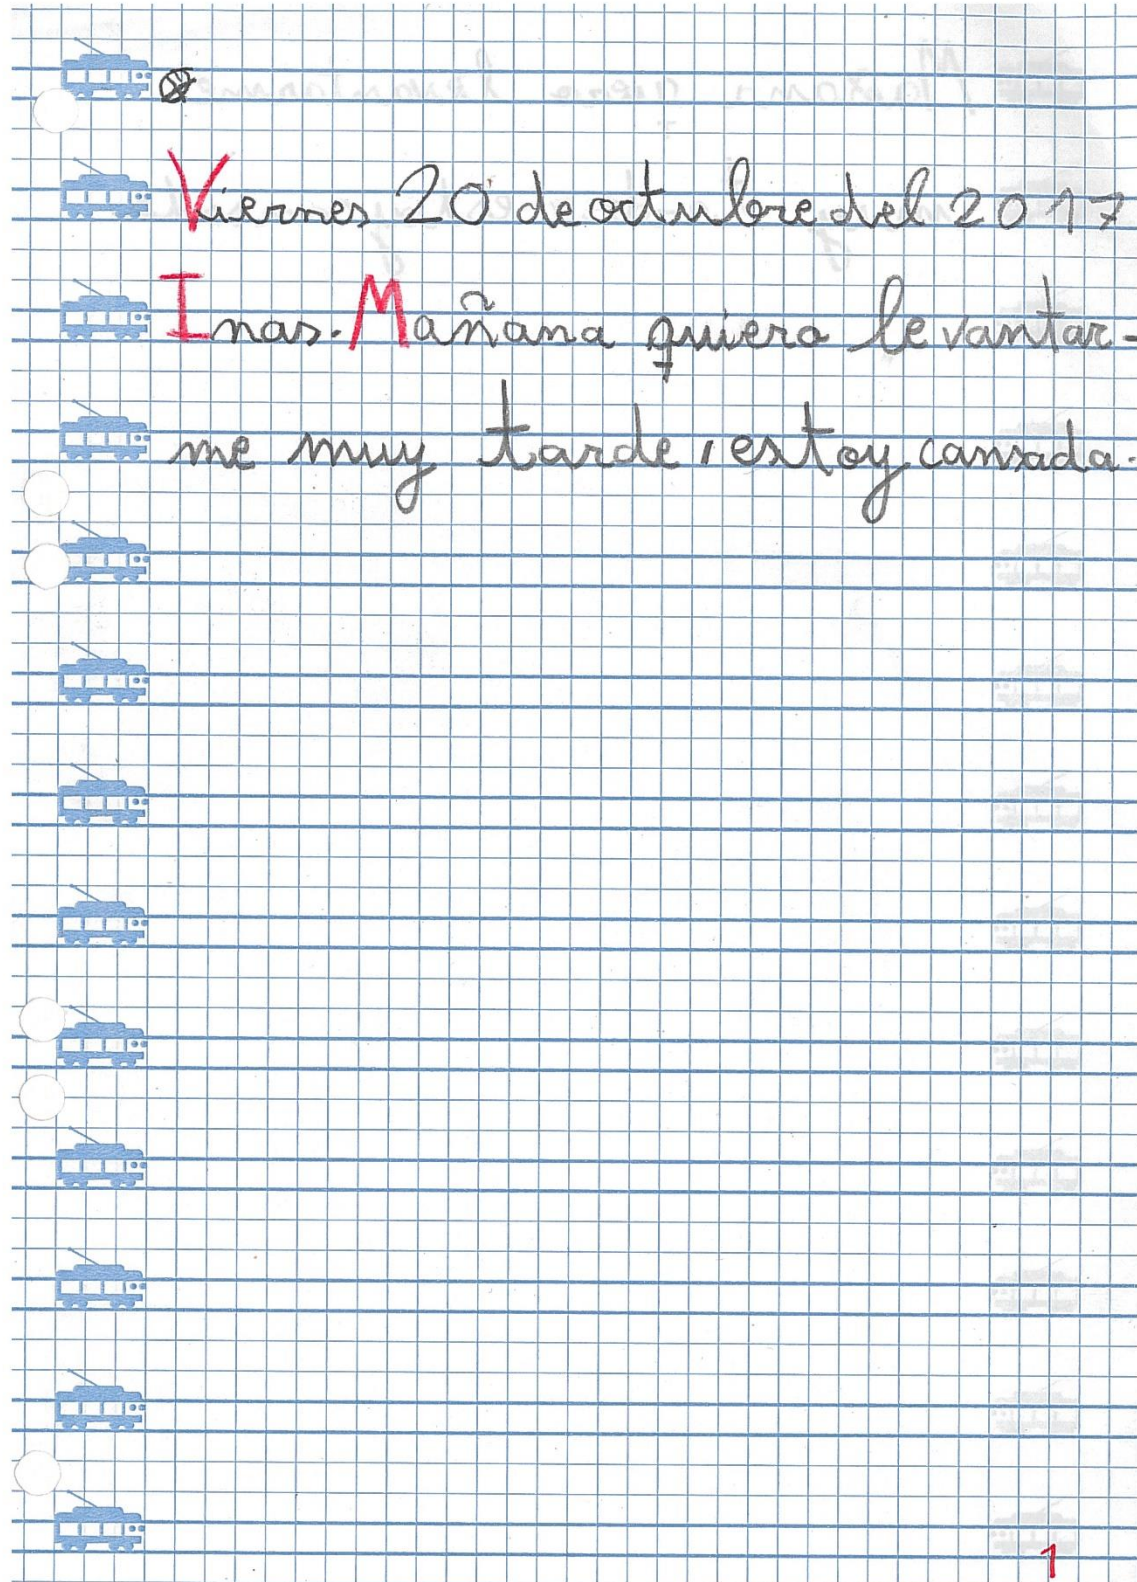 Viernes 20 de octubre del 2017
Inas. Mañana quiero levantar-
me muy tarde, estoy cansada.
1